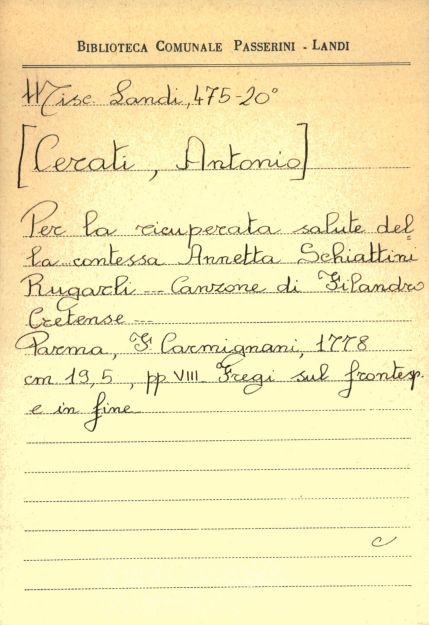 BIBLIOTECA COMUNALE PASSERINI - LANDI
Misc. Landi, 475-20°
[Cerati, Antonio]
Per la ricuperata salute del=
la contessa Annetta Schiattini
Rugarli --- Canzone di Filandro
Cretense ---
Parma, F. Carmignani, 1778
cm 19,5, pp VIII. Fregi sul frontesp.
e in fine
c